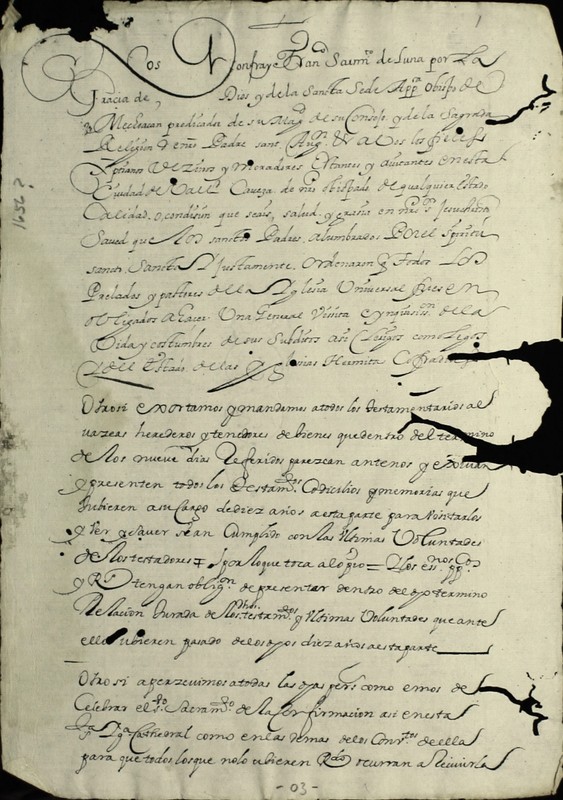 Nos Don fray Franco Sarmto de Luna por La
Gracia de Dios y de la Sancta Sede Appca Obispo de
Mechoacan predicador de su Magd de su Consejo y de la Sagrada
Religion de nro Padre sant Augn & A Vos los fieles
Xptianos Vezinos y Moradores Estantes y auitantes en esta
Ciudad de Valld Caueça de nro obispado de qualquier estado
Calidad o condision que seais, salud y grasia en nro sr Jesuchristo
Saued que Los sanctos Padres, alumbrados Por el Spiritu
sancto, Sancta y Justamente, ordenaron q Todos Los
Prelados y pastores de la Yglesia Uniuersal fuesen
obligados a hacer Una General Visita e ynquisicion de la
Vida y costumbres de sus Subditos asi Clerigos como legos
y del Estado de las Yglesias Hermitas Cofradias
Otrosi exortamos y mandamos a todos los testamentarios al
uazeas herederos y tenedores de bienes que dentro del termino
de los nueve dias Referidos parezcan ante nos y exsiuan
y presenten todos los Testamtos Codicilios y memorias que
tubieren a su Cargo de diez años a esta parte para Visitarlos
y Ver y Sauer si an Cumplido con las Ultimas Voluntades
de los testadores por lo que toca a lo pio = y los essnos ppcos
y Rs tengan obligon de presentar dentro del dho termino
Relacion Jurada de los dhos testamtos y Ultimas Voluntades que ante
ellos ubieren pasado de los dhos diez años a esta parte
Otro si aperzeuimos a todas las dhas persas como emos de
Celebrar el sto Sacramto de la Confirmacion asi en esta
sta Ygla Cathedral como en las demas de los Conuentos de ella
para que todos los que no lo ubieren Rdo ocurran a Reciuirla
1656?
- 03 -